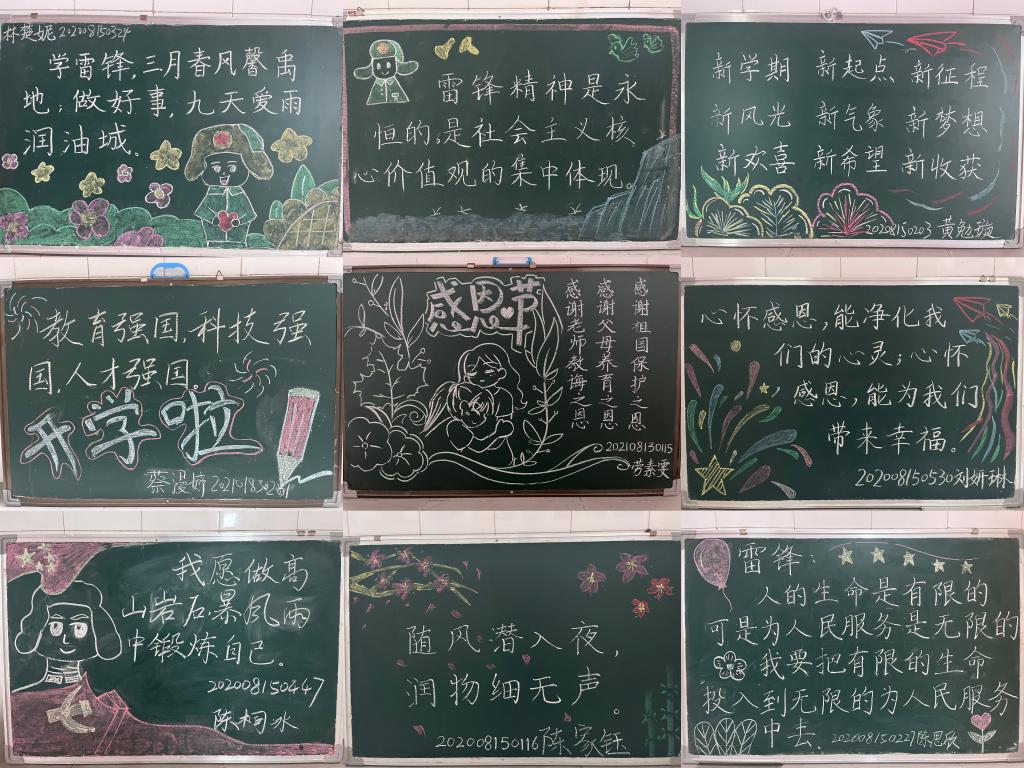 林楚妮 202008150324
学雷锋,三月春风馨禹
地;做好事,九天爱雨
润油城。
雷锋精神是永
恒的,是社会主义核
心价值观的集中体现。
新学期 新起点 新征程
新风光 新气象 新梦想
新欢喜 新希望 新收获
202008150203 黄勉璇
教育强国,科技强
国,人才强国。
开学啦
蔡漫婷
感恩节
感谢祖国保护之恩
感谢父母养育之恩
感谢老师教诲之恩
202108130115
劳素雯
心怀感恩,能净化我
们的心灵;心怀
感恩,能为我们
带来幸福。
202008150530刘妍琳
我愿做高
山岩石暴风雨
中锻炼自己。
202008150447
陈柯冰
随风潜入夜,
润物细无声。
202008150116陈家钰
雷锋:
人的生命是有限的
可是为人民服务是无限的
我要把有限的生命
投入到无限的为人民服务
中去. 202008150227陈思